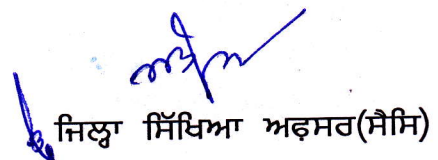 ਜਿਲ੍ਹਾ ਸਿੱਖਿਆ ਅਫ਼ਸਰ(ਸੈਸਿ)